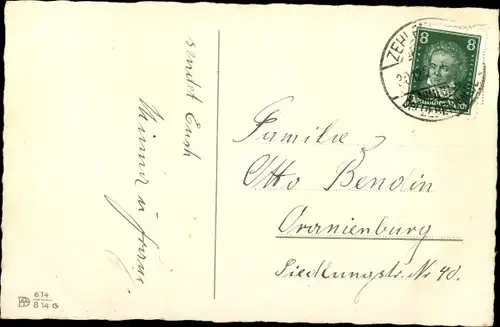 sendet Euch
Minna u
Familie
Otto Bendin
Oranienburg
Siedlungstr. Nr 40.
8 8
ZEHL
614
8 14 G